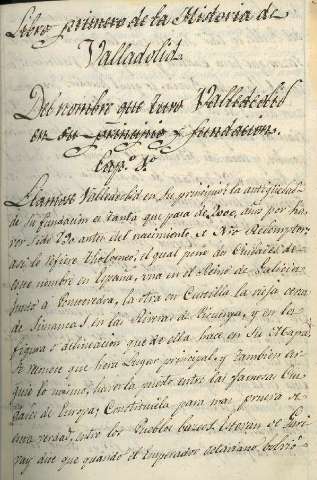 Libro primero de la Historia de
Valladolid
Del nombre que tuvo Valledolid
en su principio y fundacion.
Cap.º 1.º
Llamose Valledolid en su principio la antigüedad
de su fundacion es tanta que pasa de 2000, años por ha
ver sido antes del nacimiento de Nro Redemptor,
asi lo refiere Tholomeo, el qual pone dos Ciudades de
este nombre en España, una en el Reino de Galicia
junto a Pontevedra, la otra en Castilla la vieja cerca
de Simancas en las Riveras de Pisuerga, y en la
figura o delineacion que de ella hace en su Mapa
se reconoce que hera Lugar principal, y tambien ar
guie lo mismo, haverla puesto entre las famosas Ciu
dades de Europa; Constituiela para mas prueba de
esta verdad, entre los Pueblos baceos, Estevan de Gari
vay dice que quando el Emperador octaviano, bolvio